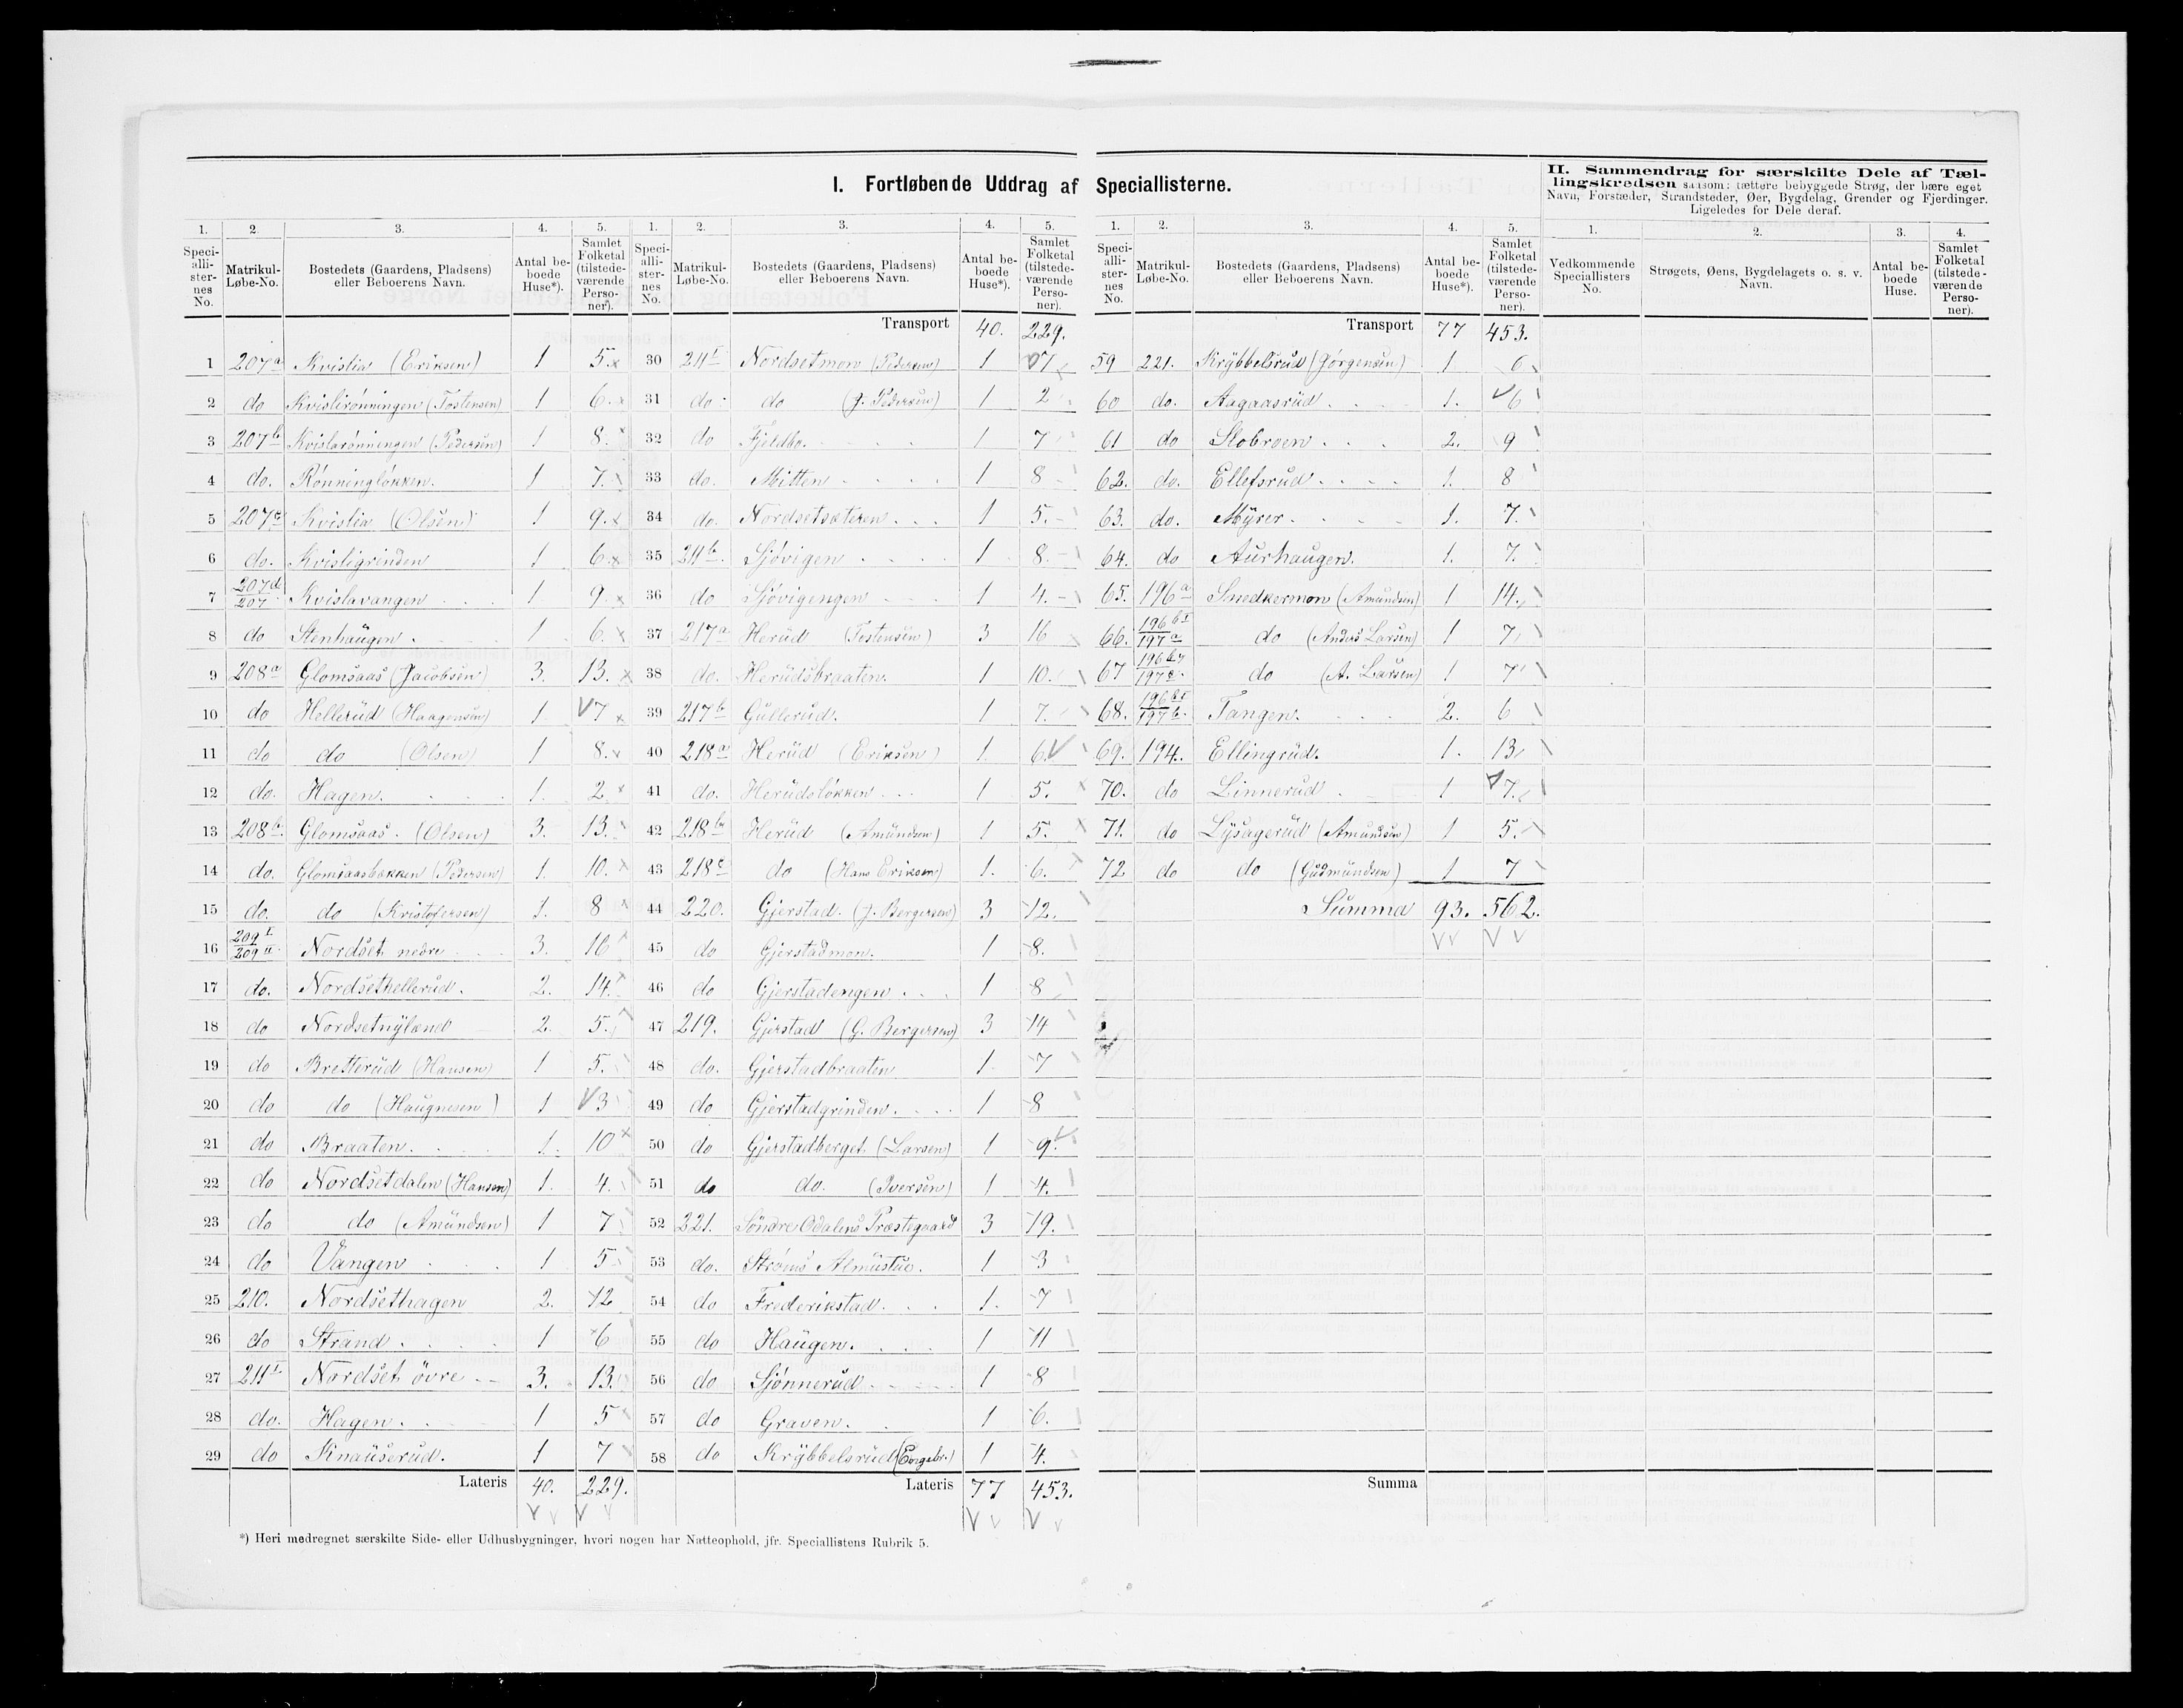 I. Fortløbende Uddrag af Speciallisterne.
II. Sammendrag for særskilte Dele af Tæl-
lingskredsen saasom: tættere bebyggede Strøg, der bære eget
Navn, Forstæder, Strandsteder, Øer, Bygdelag, Grender og Fjerdinger.
Ligeledes for Dele deraf.
1. 2. 3. 4. 5.
Speci-alli-ster-nes No. Matrikul-Løbe-No. Bostedets (Gaardens, Pladsens) eller Beboerens Navn. Antal be-boede Huse*). Samlet Folketal (tilstede-værende Perso-ner).
1 207a Kvislia (Eriksen) 1 5.
2 do Kvislirönningen (Tostensen) 1 6.
3 207b Kvislarönningen (Pedersen) 1 8.
4 do. Rönninglökken. 1 7.
5 207c Kvislia (Olsen) 1 9.
6 do. Kvisligrinden 1 6.
7 207d/207 Kvislavangen 1 9.
8 do Stenhaugen. 1 6.
9 208a Glomsaas (Jacobsen) 3. 13.
10 do Hellerud (Haagensen) 1. 7
11 do do (Olsen) 1 8.
12 do. Hagen. 1. 2
13 208b. Glomsaas. (Olsen) 3. 13.
14 do. Glomsaasbakken (Pedersen) 1. 10.
15 do. do (Kristofersen) 1. 8
16 209I/209II Nordset nedre 3. 16
17 do. Nordsethellerud. 2. 14.
18 do Nordsetnyland 2. 5.
19 do Bretterud (Hansen) 1 5.
20 do do (Haugnesen) 1 3
21 do Braaten. 1. 10
22 do Nordsetdalen (Hansen) 1. 4.
23 do do (Amundsen) 1 7
24 do Vangen 1 5
25 210. Nordsethagen 2. 12
26 do Strand. 1 6
27 211I Nordset övre 3. 13.
28 do. Hagen. 1 5
29 do Knauserud. 1 7
Lateris 40. 229.
1. 2. 3. 4. 5.
Speci-alli-ster-nes No. Matrikul-Løbe-No. Bostedets (Gaardens, Pladsens) eller Beboerens Navn. Antal be-boede Huse*). Samlet Folketal (tilstede-værende Perso-ner).
Transport 40. 229.
30 211I Nordsetmon (Pedersen) 1 7
31 do. do (J. Pedersen) 1 2
32 do Fjeldbo. 1 7
33 do. Mitten 1 8
34 do. Nordsetsæteren. 1 5.
35 211b. Sjövigen 1 8
36 do Sjövigengen 1 4.
37 217a Herud (Tostensen) 3 16
38 do. Herudsbraaten. 1 10.
39 217b Gullerud. 1 7.
40 218a Herud (Eriksen) 1. 6
41 do. Herudslökken 1 5.
42 218b Herud (Amundsen) 1 5.
43 218c do (Hans Eriksen) 1. 6.
44 220. Gjerstad. (J. Bergersen) 3 12.
45 do Gjerstadmon. 1 8.
46 do Gjerstadengen 1 8
47 219. Gjerstad (G. Bergersen) 3 14
48 do. Gjerstadbraaten 1. 7
49 do Gjerstadgrinden. 1 8
50 do Gjerstadberget (Larsen) 1 9.
51 do do. (Iversen) 1 4.
52 221. Söndre Odalens Præstegaard 3 19.
53 do. Ströms Almustue. 1 3
54 do Frederikstad. 1. 7
55 do Haugen. 1 11
56 do Sjönnerud 1 8
57 do Graven. 1 6.
58 do Krybbelsrud (Engebr.) 1 4.
Lateris 77 453.
1. 2. 3. 4. 5.
Speci-alli-ster-nes No. Matrikul-Løbe-No. Bostedets (Gaardens, Pladsens) eller Beboerens Navn. Antal be-boede Huse*). Samlet Folketal (tilstede-værende Perso-ner).
Transport 77 453.
59 221. Krybbelsrud (Jörgensen) 1 6
60 do. Aagaasrud 1. 6
61 do Slobroen 2. 9
62. do. Ellefsrud 1. 8
63. do. Myrer. 1. 7.
64. do Aurhaugen. 1. 7.
65. 196a Snedkermon (Amundsen) 1 14.
66. 196bI/197a do (Anders Larsen) 1 7
67 do (A. Larsen) 1 7
68. 196bI/197b. Tangen. 2. 6
69. 194. Ellingrud. 1. 13
70. do Linnerud 1 7.
71. do Lysagerud (Amundsen) 1 5.
72 do do (Gudmundsen) 1 7
Summa 93. 562.
Summa
1. 2. 3. 4.
Vedkommende Speciallisters No. Strøgets, Øens, Bygdelagets o. s. v. Navn. Antal be-boede Huse. Samlet Folketal (tilstede-værende Perso-ner).
*) Heri medregnet særskilte Side- eller Udhusbygninger, hvori nogen har Natteophold, jfr. Speciallistens Rubrik 5.